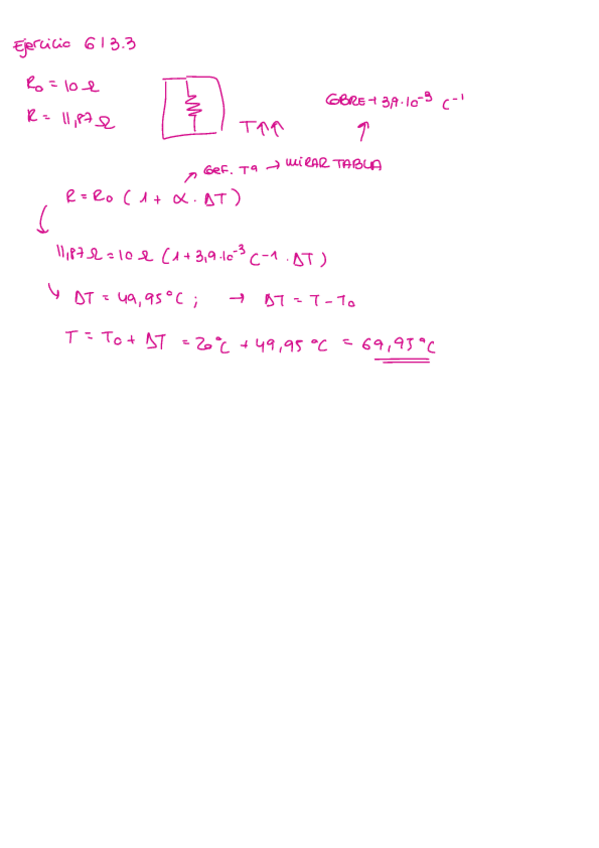 Ejercicio 613.3
R₀ = 10 Ω
R = 11,87 Ω
T↑↑
COBRE → 3,9·10⁻³ C⁻¹
COEF. Tª → MIRAR TABLA
R = R₀ (1 + α · ΔT)
11,87 Ω = 10 Ω (1 + 3,9·10⁻³ C⁻¹ · ΔT)
↳ ΔT = 49,95 °C ; → ΔT = T - T₀
T = T₀ + ΔT = 20 °C + 49,95 °C = 69,95 °C